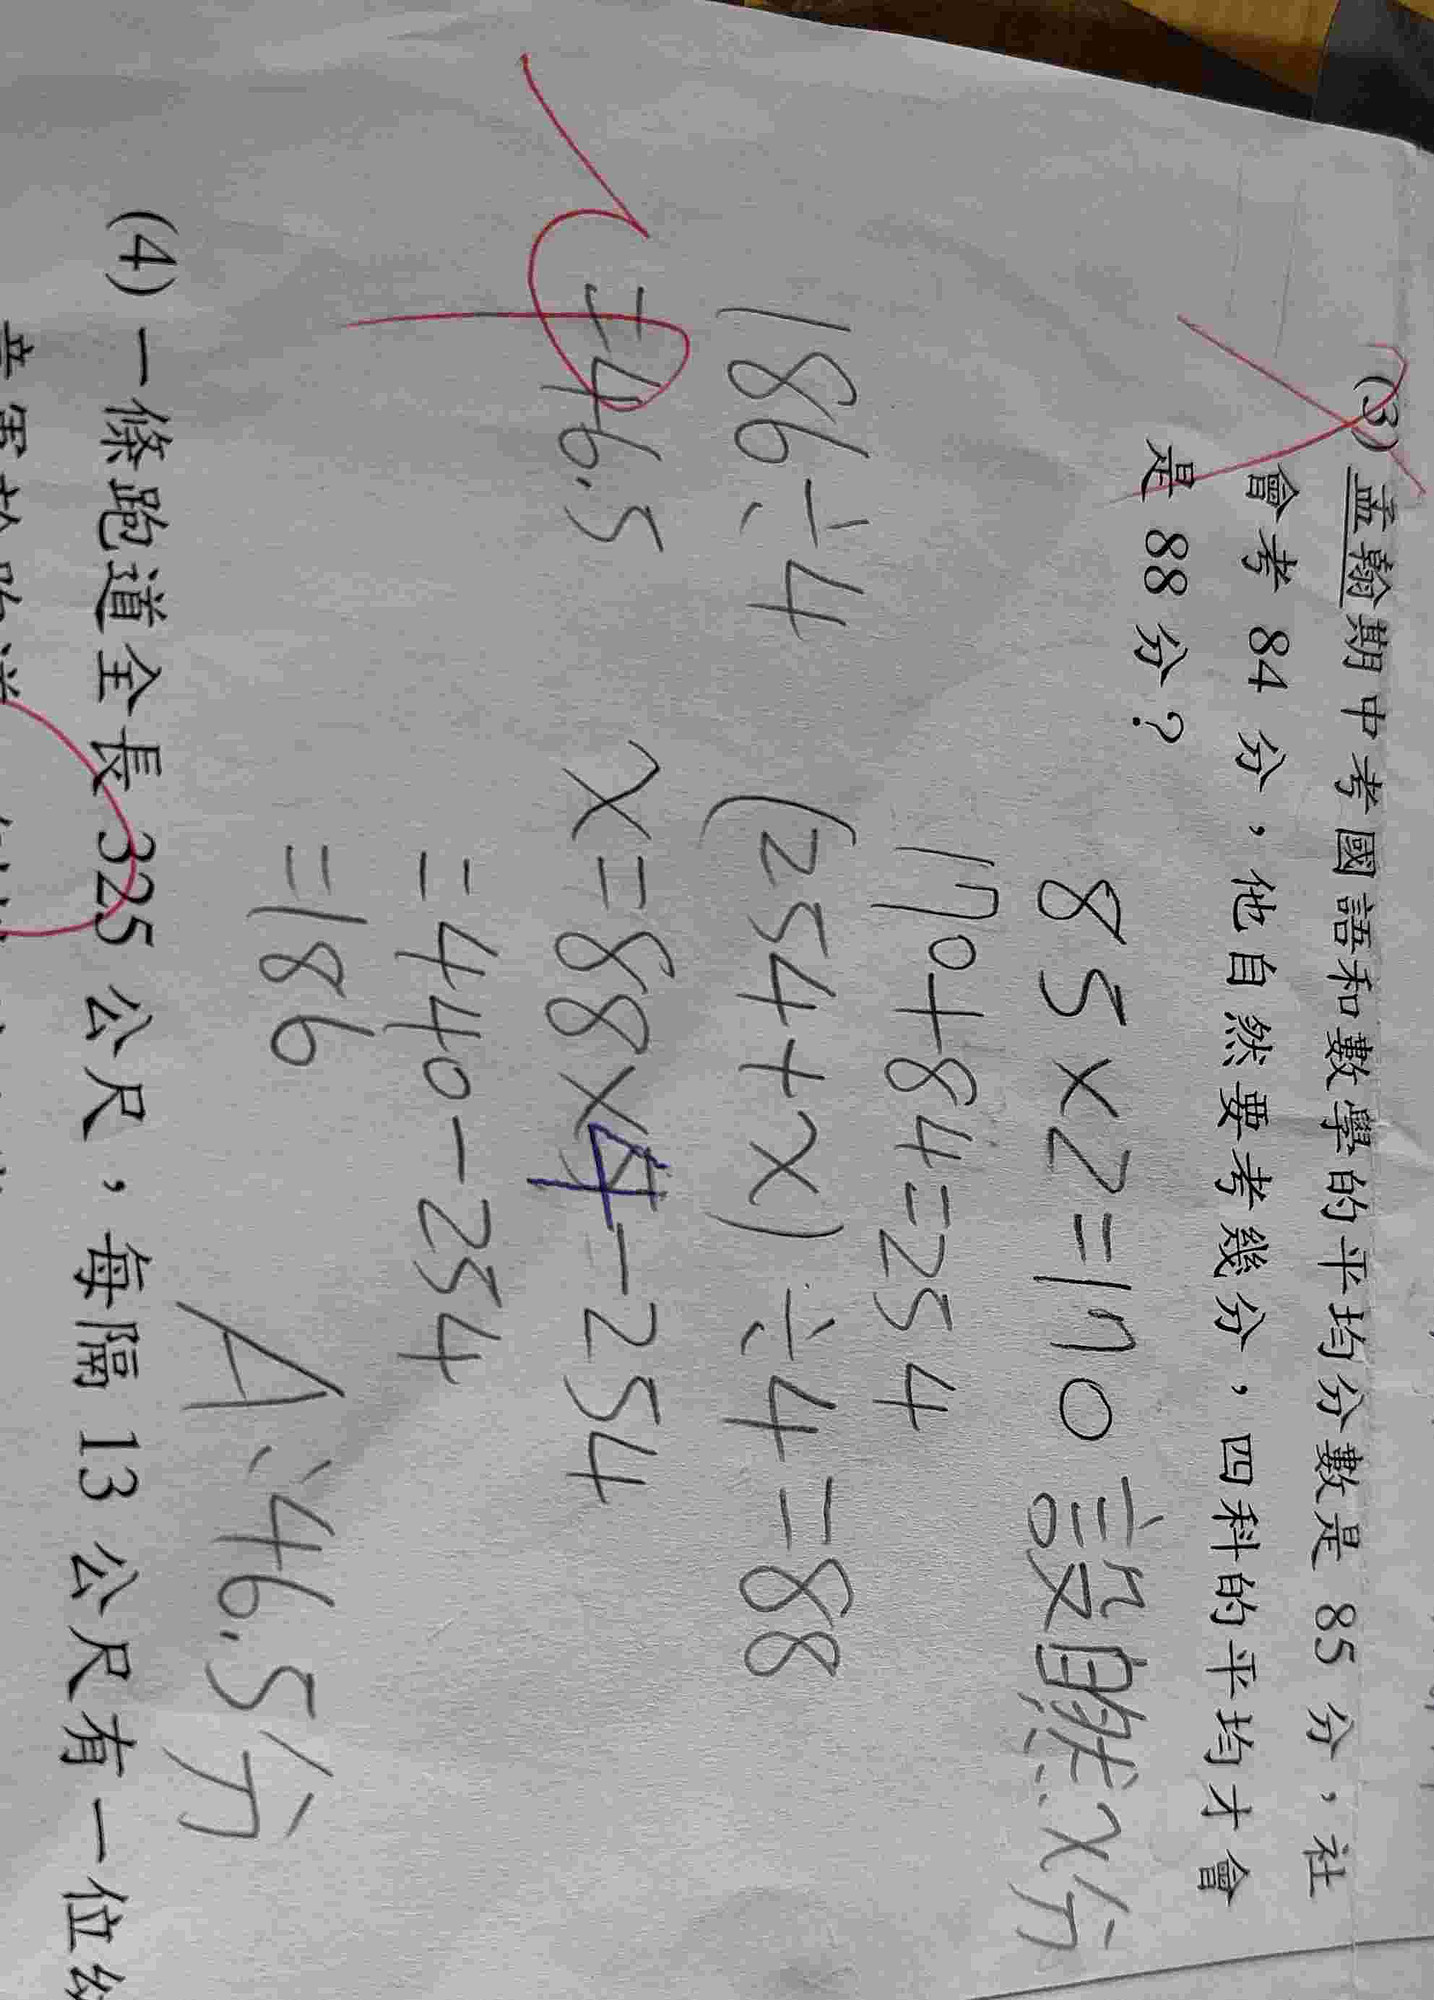 (3) 孟翰期中考國語和數學的平均分數是 85 分，社
會考 84 分，他自然要考幾分，四科的平均才會
是 88 分？
85×2=170 設自然x分
170+84=254
(254+x)÷4=88
x=88×4-254
=440-254
=186
186÷4
=46.5
A:46.5分
(4) 一條跑道全長 325 公尺，每隔 13 公尺有一位